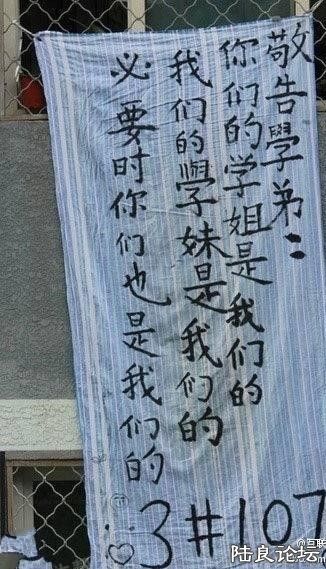 敬告學弟:
你们的学姐是我们的
我们的學妹是我们的
必要时你们也是我们的
♡3#107
@互联
陆良论坛